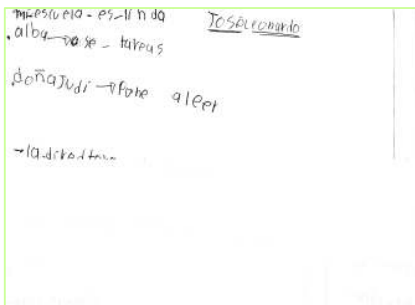 mi escuela - es - linda
JoseLeonardo
.alba → ase - tareas
doñaJudi → Pone a leer